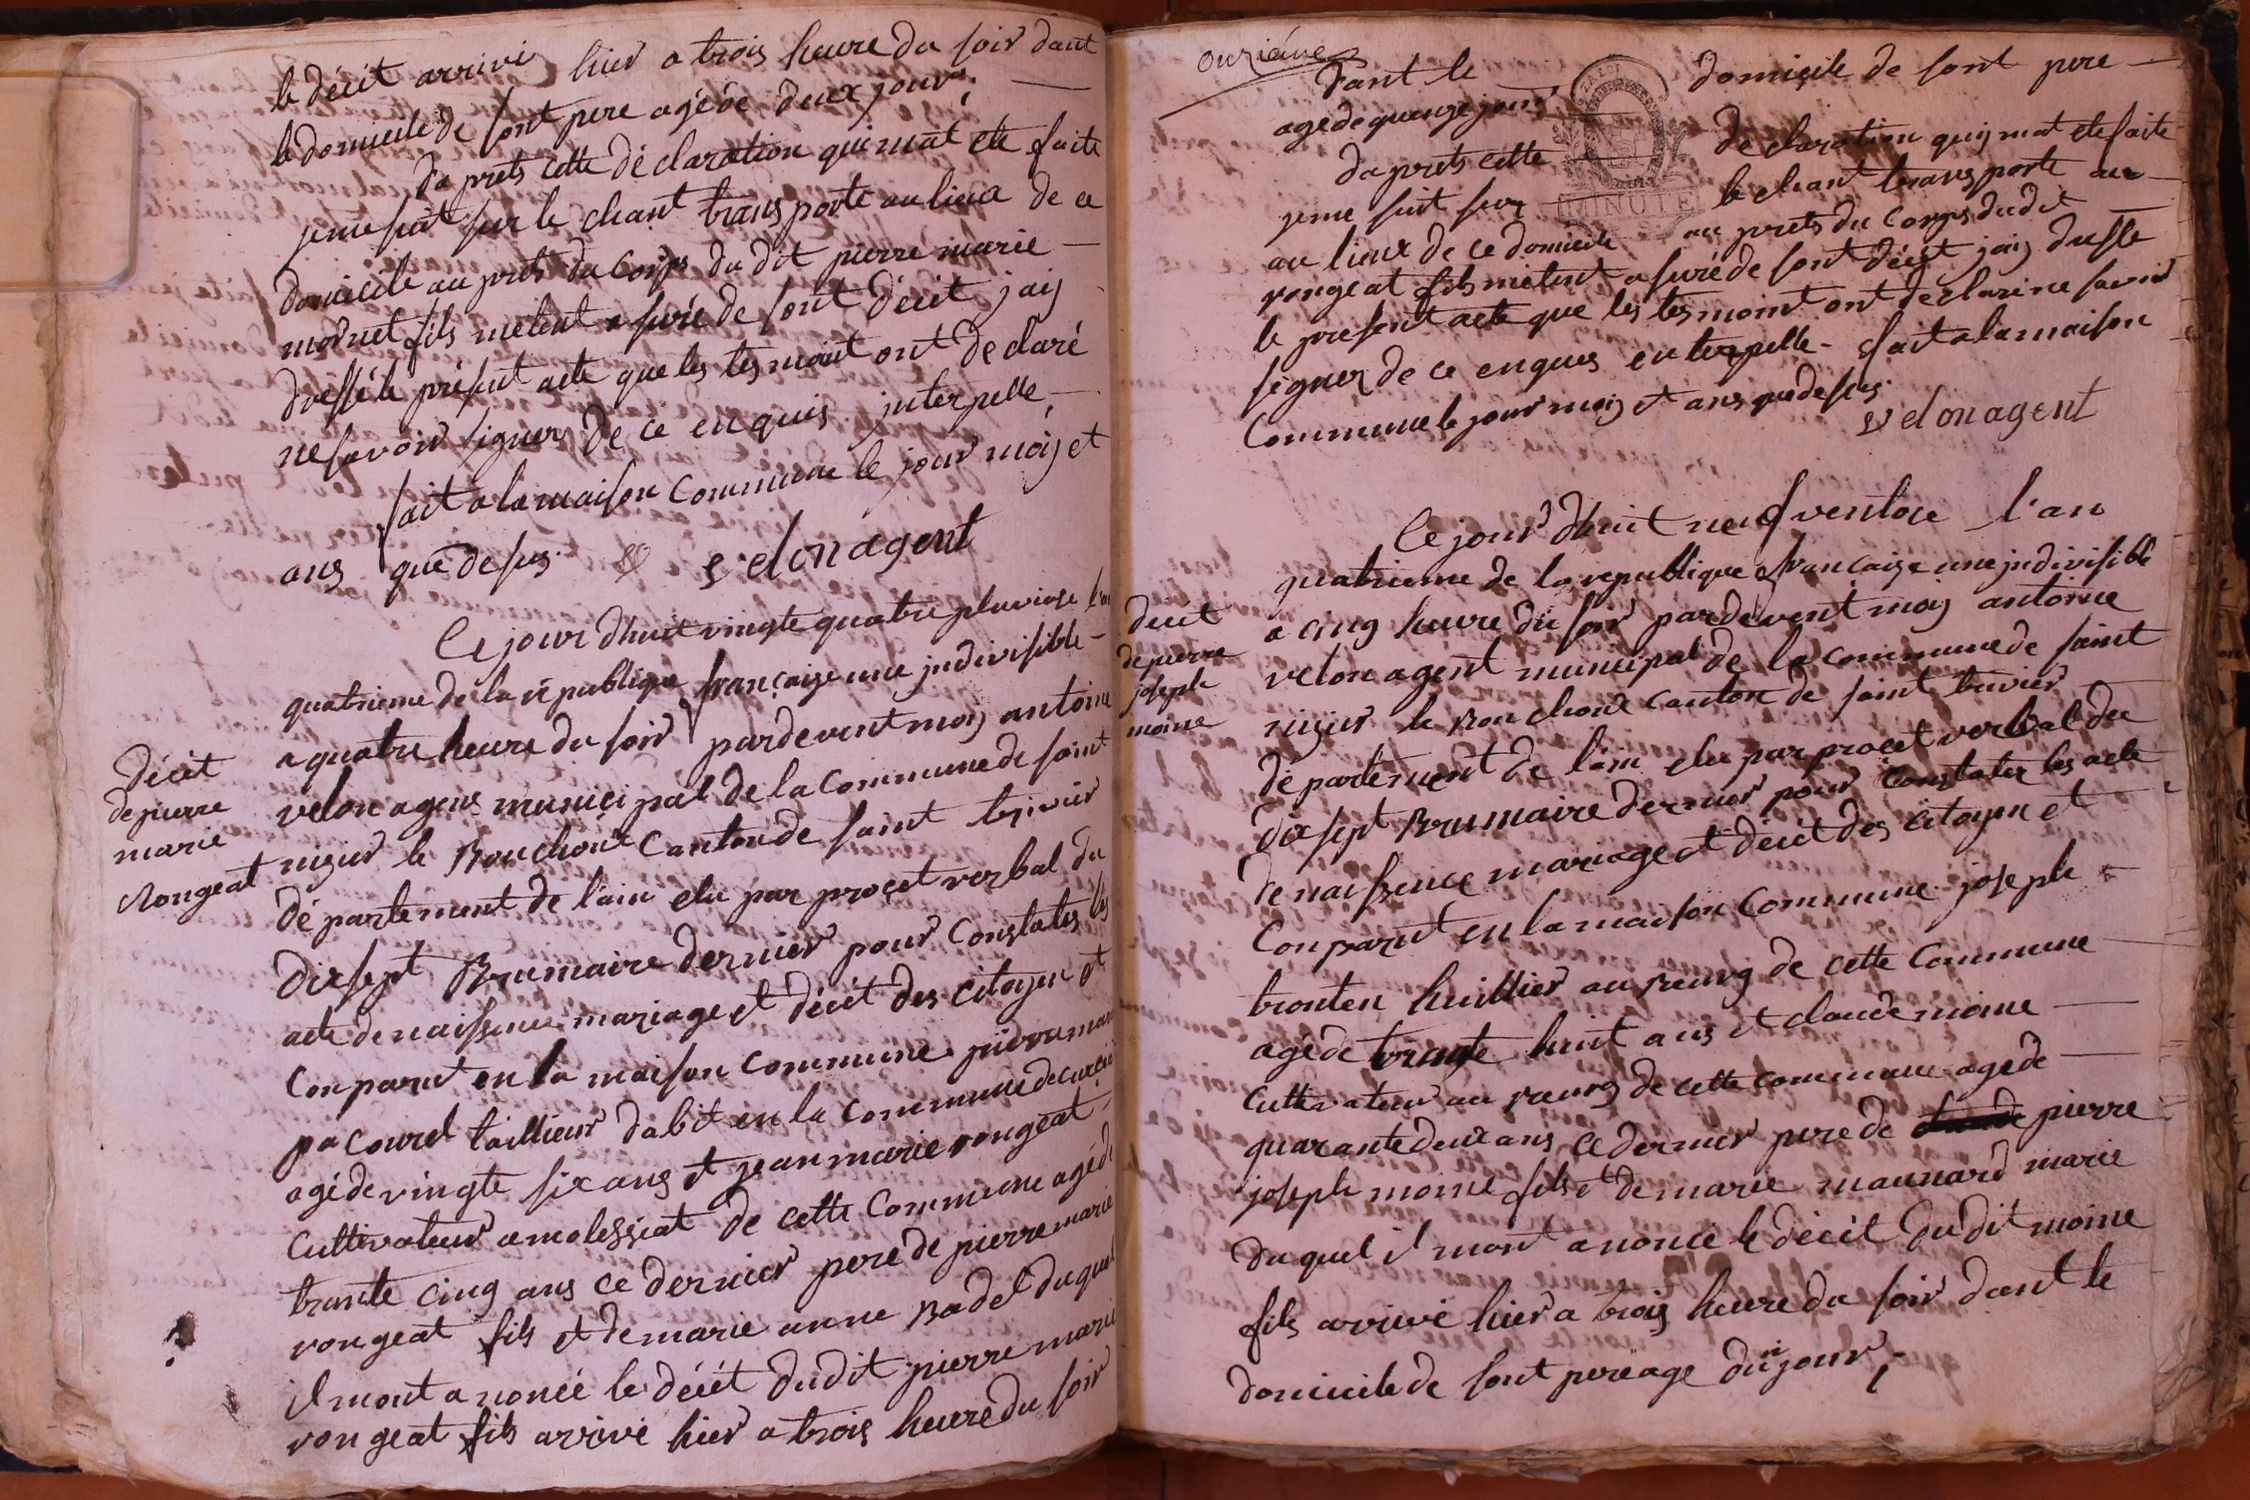 le décit arrivé hier a trois heure du soir dant
le domicile de sont pere agé de deux jours;
da prets cette déclaration qui mat ete faite
jeme suit sur le chant transporte au lieux de ce
domicile au prets du corps du dit pierre marie
mornet fils metent asuré de sont décit jaij
dressé le présent acte que les tesmoint ont declaré
ne savoir signer de ce enquis interpelle
fait a la maison commune le jour moij et
ans que desus velon agent
Ce jour dhuit vingte quatre pluviose l'an
quatrieme de la république française une jndivisible
a quatre heure du soir pardevent moij antoine
velon agent municipal de la commune de saint
décit
de pierre
marie
Rongeat
nizier le Bouchoux canton de saint trivier
département de l'ain elu par procet verbal du
dixsept Brumaire dernier pour constater les
acte de naissence mariage et décit des citoyen et
Conparut en la maison commune pierre marie
pacouret taillieur dabit en la commune de
agé de vingte six ans et jean marie rongeat
cultivateur a molessiat de cette commune agéde
trante cinq ans ce dernier pere de pierre marie
rongeat fils et de marie anne Badet duquel
il mont anoncé le décét dudit pierre marie
rongeat fils arrivé hier a trois heure du soir
onziéme
dant le domicile de sont pere
age de quenze jour
da prets cette declaration quij mat ete faite
jeme suit sur le chant transporte au
au lieux de ce domicile au prets du corps dudit
rongeat fils metent asuré de sont décit jaij dresse
le present acte que les tesmoint ont declarine savoir
signer de ce enques enterpelle fait a la maison
Commune le jour moij et ans que desus
velon agent
MINUTE
Ce jour dhuit neuf ventose l'an
quatrieme de la republique francaise une jndivisible
decit
de pierre
joseph
moine
a cinq heure du soir pardevent moij antoine
velon agent municipal de la commune de saint
nizier le Bouchoux canton de saint trivier
département de lain elu par procet verbal du
dixsept Brumaire dernier pour constater les acte
de naissence mariage et décit des citoyen et
Conparut en la maison commune joseph
tronten huillier au Bourg de cette commune
agé de trante huit ans et claude moine
Cultivateur au bourg de cette commune agé de
quarante deux ans ce dernier pere de pierre
joseph moine fils et de marie maunard marie
duquel il mont anoncé le décit dudit moine
fils arrivé hier a trois heure du soir dant le
domicile de sont pere age dun jour;